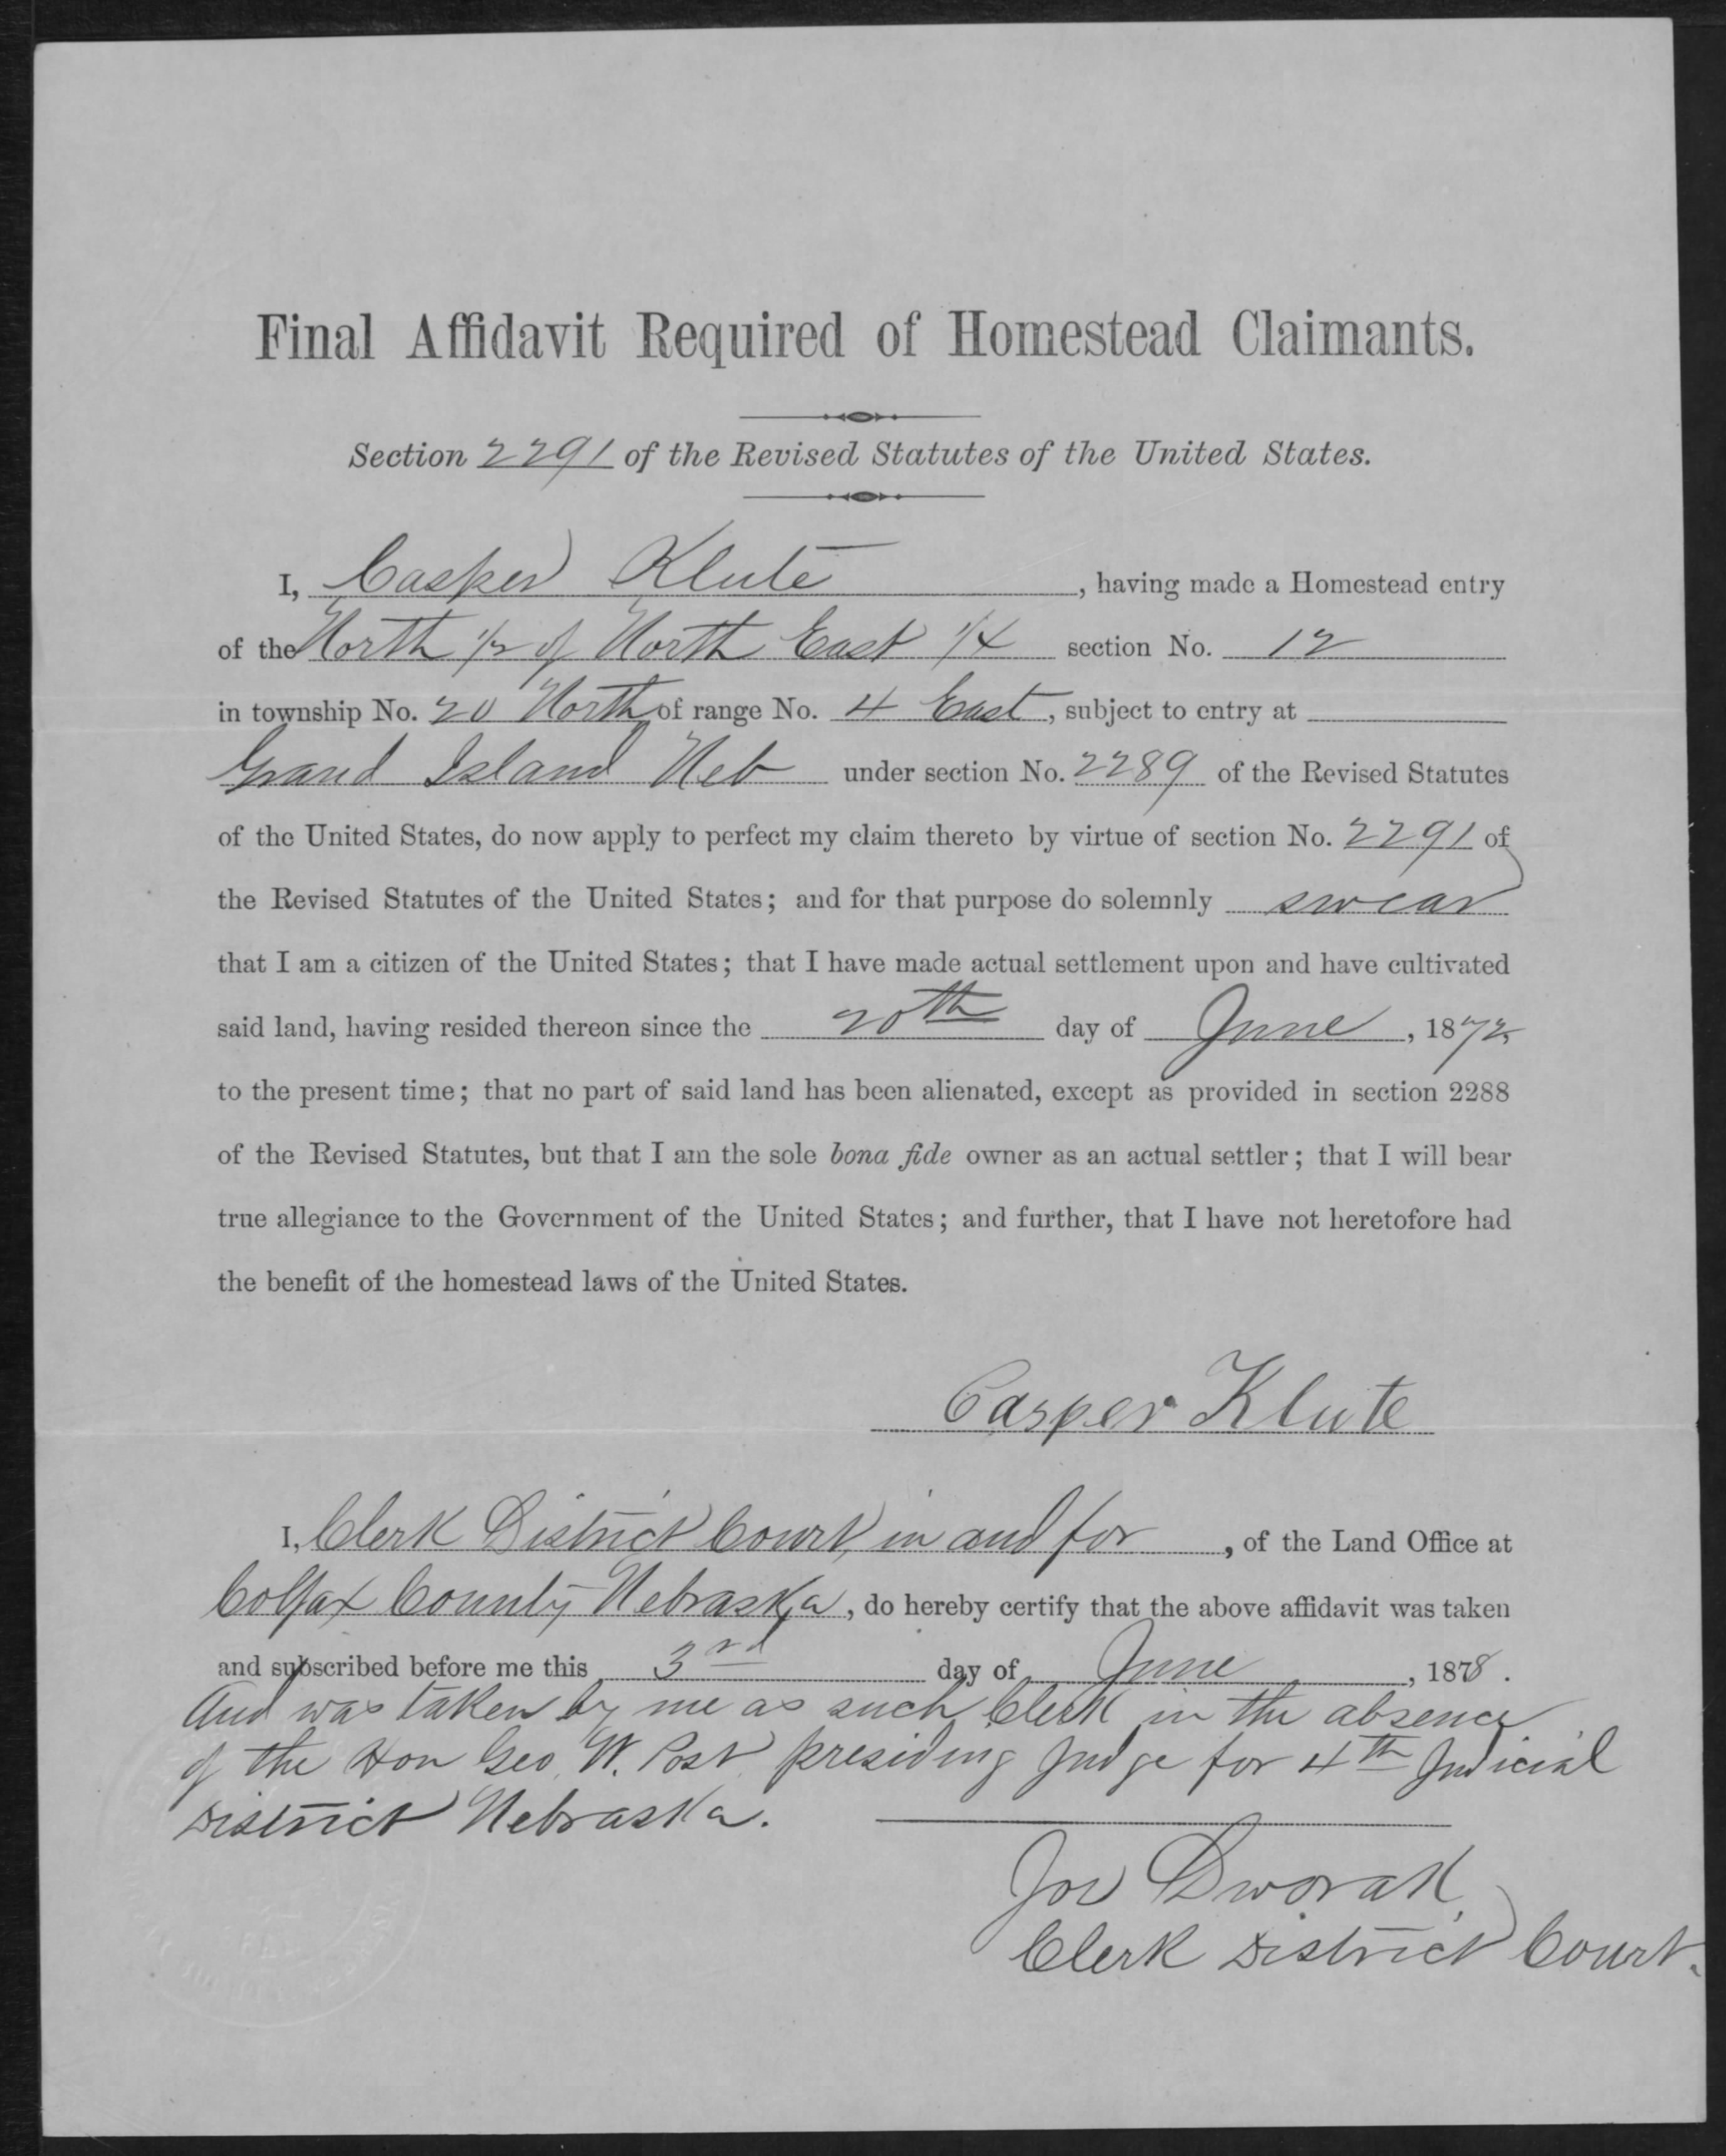 Final Affidavit Required of Homestead Claimants.
Section 2291 of the Revised Statutes of the United States.
I, Casper Klute, having made a Homestead entry
of the North 1/2 of North East 1/4 section No. 12
in township No. 20 North of range No. 4 East, subject to entry at
Grand Island Neb under section No. 2289 of the Revised Statutes
of the United States, do now apply to perfect my claim thereto by virtue of section No. 2291 of
the Revised Statutes of the United States; and for that purpose do solemnly swear
that I am a citizen of the United States; that I have made actual settlement upon and have cultivated
said land, having resided thereon since the 20th day of June, 1872
to the present time; that no part of said land has been alienated, except as provided in section 2288
of the Revised Statutes, but that I am the sole bona fide owner as an actual settler; that I will bear
true allegiance to the Government of the United States; and further, that I have not heretofore had
the benefit of the homestead laws of the United States.
Casper Klute
I, Clerk District Court, in and for, of the Land Office at
Colfax County Nebraska, do hereby certify that the above affidavit was taken
and subscribed before me this 3rd day of June, 1878.
And was taken by me as such Clerk in the absence
of the Hon Geo. W. Post presiding Judge for 4th Judicial
District Nebraska.
Jos Dworak
Clerk District Court.